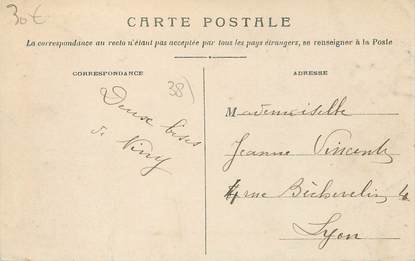 30€
CARTE POSTALE
La correspondance au recto n'étant pas acceptée par tous les pays étrangers, se renseigner à la Poste
CORRESPONDANCE
38
Deux bises
de Niny
ADRESSE
Mademoiselle
Jeanne Vincent
4 rue Béchevelin
Lyon